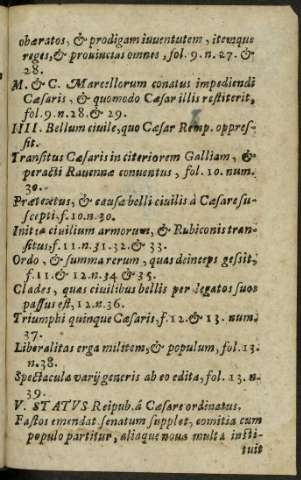 obæratos, & prodigam iuuentutem, itemque
reges, & prouincias omnes, fol. 9. n. 27. &
28.
M. & C. Marcellorum conatus impediendi
Cæsaris, & quomodo Cæsar illis restiterit,
fol. 9. n. 28. & 29.
IIII. Bellum ciuile, quo Cæsar Remp. oppres-
sit.
Transitus Cæsaris in citeriorem Galliam, &
peracti Rauennæ conuentus, fol. 10. num.
30.
Prætextus, & causa belli ciuilis à Cæsare su-
scepti, f. 10. n. 30.
Initia ciuilium armorum, & Rubiconis tran-
situs, f. 11. n. 31. 32. & 33.
Ordo, & summa rerum, quas deinceps gessit,
f. 11. & 12. n. 34 & 35.
Clades, quas ciuilibus bellis per legatos suos
passus est, 12. n. 36.
Triumphi quinque Cæsaris, f. 12. & 13. num.
37.
Liberalitas erga militem, & populum, fol. 13.
n. 38.
Spectacula varij generis ab eo edita, fol. 13. n.
39.
V. STATVS Reipub. á Cæsare ordinatus.
Fastos emendat senatum supplet, comitia cum
populo partitur, aliaque noua multa insti-
tuit